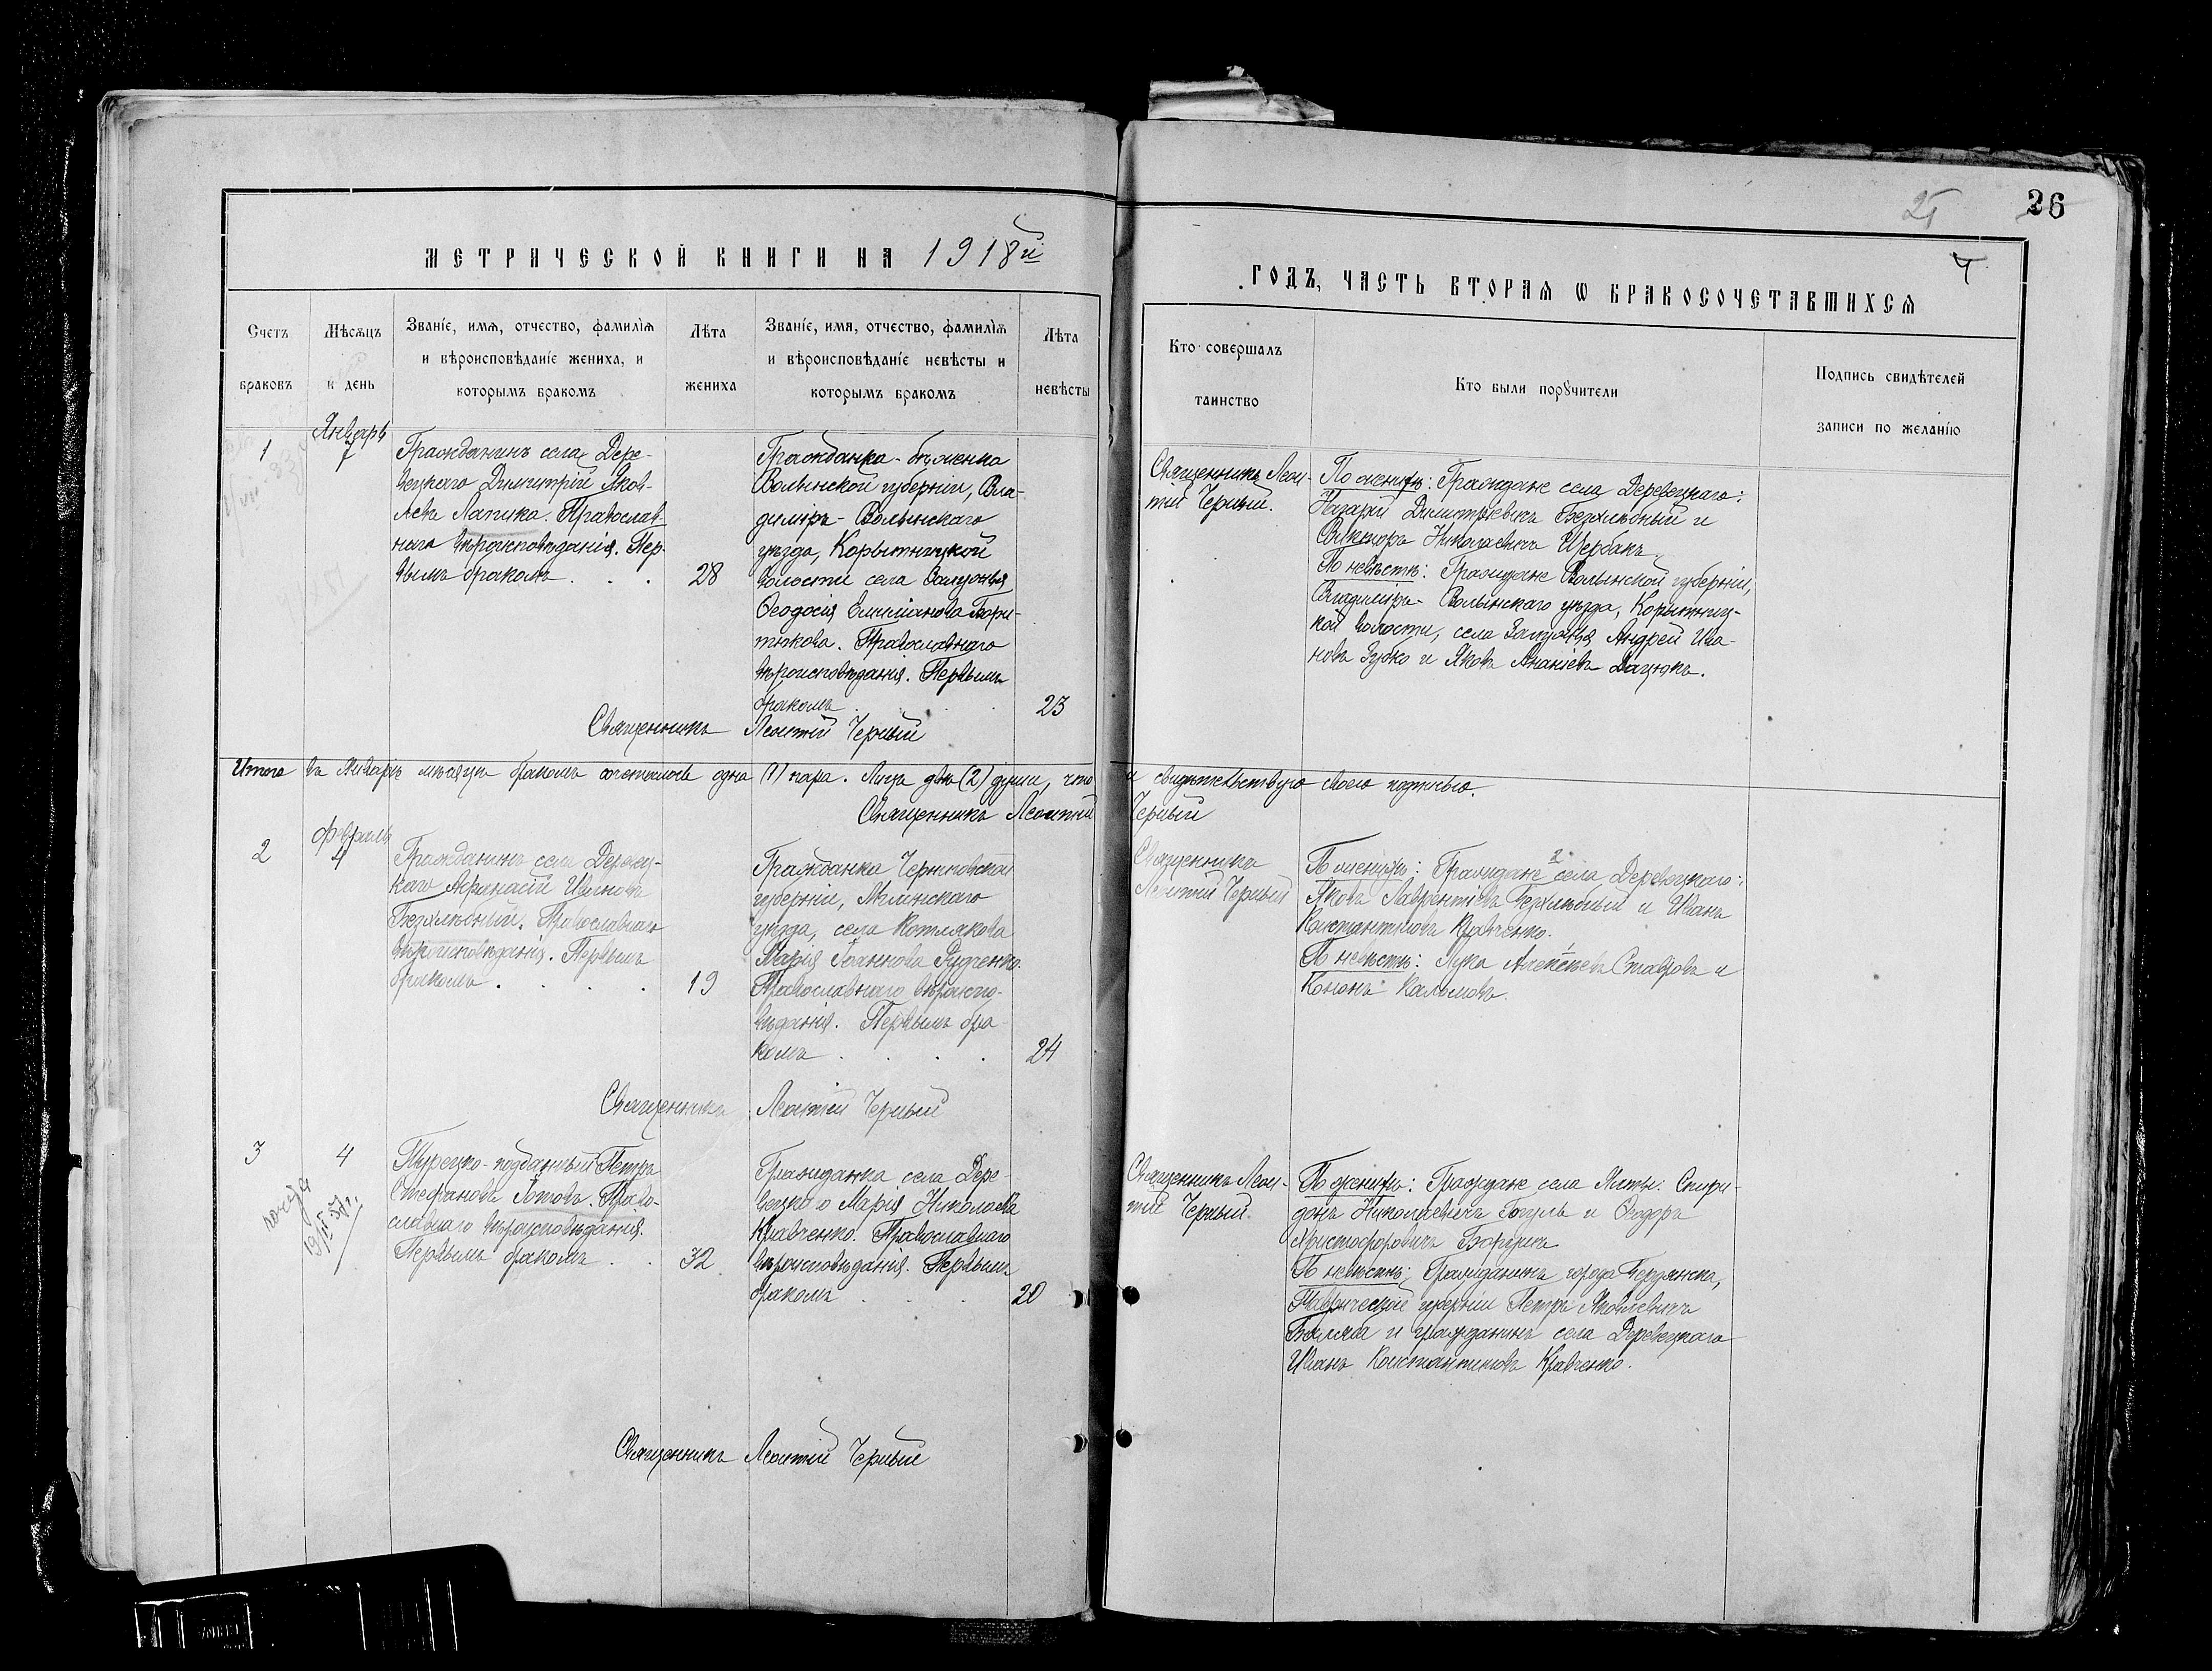 26
25
4
МЕТРИЧЕСКОЙ КНИГИ НА 1918й
ГОДЪ, ЧАСТЬ ВТОРАЯ Ѡ БРАКОСОЧЕТАВШИХСЯ
Счетъ
браковъ
Мѣсяцъ
и день
Званіе, имя, отчество, фамилія
и вѣроисповѣданіе жениха, и
которымъ бракомъ
Лѣта
жениха
Званіе, имя, отчество, фамилія
и вѣроисповѣданіе невѣсты и
которымъ бракомъ
Лѣта
невѣсты
Кто совершалъ
таинство
Кто были поручители
Подпись свидѣтелей
записи по желанію
1
Январь
7
Гражданинъ села Дере-
вецкаго Димитрій Яков-
левъ Лапика. Православ-
наго вѣроисповѣданія. Пер-
вымъ бракомъ . . .
28
Гражданка-бѣженка
Волынской губерніи, Вла-
диміръ-Волынскаго
уѣзда, Корытницкой
волости села
Ѳеодосія Емиліанова
тюкова. Православнаго
вѣроисповѣданія. Первымъ
бракомъ . . .
23
Священникъ Леон-
тій Черный.
По женихѣ: Граждане села Деревецкаго:
Назарій Димитріевичъ Безхлѣбный и
Викторъ Николаевичъ Щербакъ.
По невѣстѣ: Граждане Волынской губерніи,
Владиміръ-Волынскаго уѣзда, Корытниц-
кой волости, села Андрей Ива-
новъ Зубко и Яковъ Ананіевъ Дацюкъ.
Священникъ Леонтій Черный
Итого въ Январѣ мѣсяцѣ бракомъ сочеталась одна (1) пара. Лицъ двѣ (2) души, что и свидѣтельствую своею подписью.
Священникъ Леонтій Черный
2
Февраль
4
Гражданинъ села Деревец-
каго Афанасій Ивановъ
Безхлѣбный. Православнаго
вѣроисповѣданія. Первымъ
бракомъ . . . .
19
Гражданка Черниговской
губерніи, Мглинскаго
уѣзда, села Котлякова
Марія Іоаннова Рудченко.
Православнаго вѣроиспо-
вѣданія. Первымъ бра-
комъ . . . .
24
Священникъ
Леонтій Черный
По женихѣ: Граждане села Деревецкаго:
Яковъ Лаврентіевъ Безхлѣбный и Иванъ
Константиновъ Кравченко.
По невѣстѣ: Лука Алексѣевъ Ставровъ и
Кононъ
Священникъ Леонтій Черный
3
4
Турецко-подданный Петръ
Стефановъ Православ-
славнаго вѣроисповѣданія.
Первымъ бракомъ . .
32
Гражданка села Дере-
вецкого Марія Николаева
Кравченко. Православнаго
вѣроисповѣданія. Первымъ
бракомъ . . .
20
Священникъ Леон-
тій Черный.
По женихѣ: Граждане села Ялты: Спири-
донъ Николаевичъ и Ѳеодоръ
Христофоровичъ
По невѣстѣ: Гражданинъ города Бердянска,
Таврической губерніи Петръ Яковлевичъ
и гражданинъ села Деревецкаго
Иванъ Константиновъ Кравченко.
Священникъ Леонтій Черный